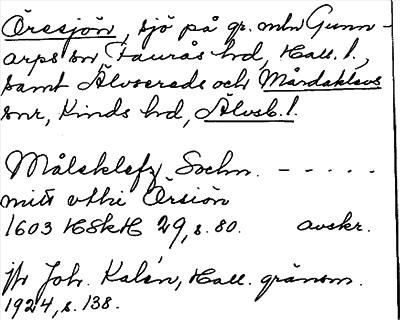 Öresjön, sjö på gr. mln Gunn-
arps sn, Faurås hd, Hall. l.,
samt Älvsereds och Mårdaklevs
snr, Kinds hd, Älvsb. l.
Målsklefz Sochn. - - - - -
mitt vthi Örsiön
1603 HSkH 29, s. 80. avskr.
jfr Joh. Kalén, Hall. gränsm.
1924, s. 138.